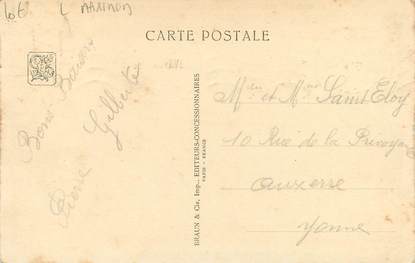 10€
CARTE POSTALE
Bons Baisers
Gilberte
Pierre
BRAUN & Cie, Imp., EDITEURS-CONCESSIONNAIRES
PARIS - FRANCE
Mr et Mme Saint Eloy
10 Rue de la
Auxerre
Yonne